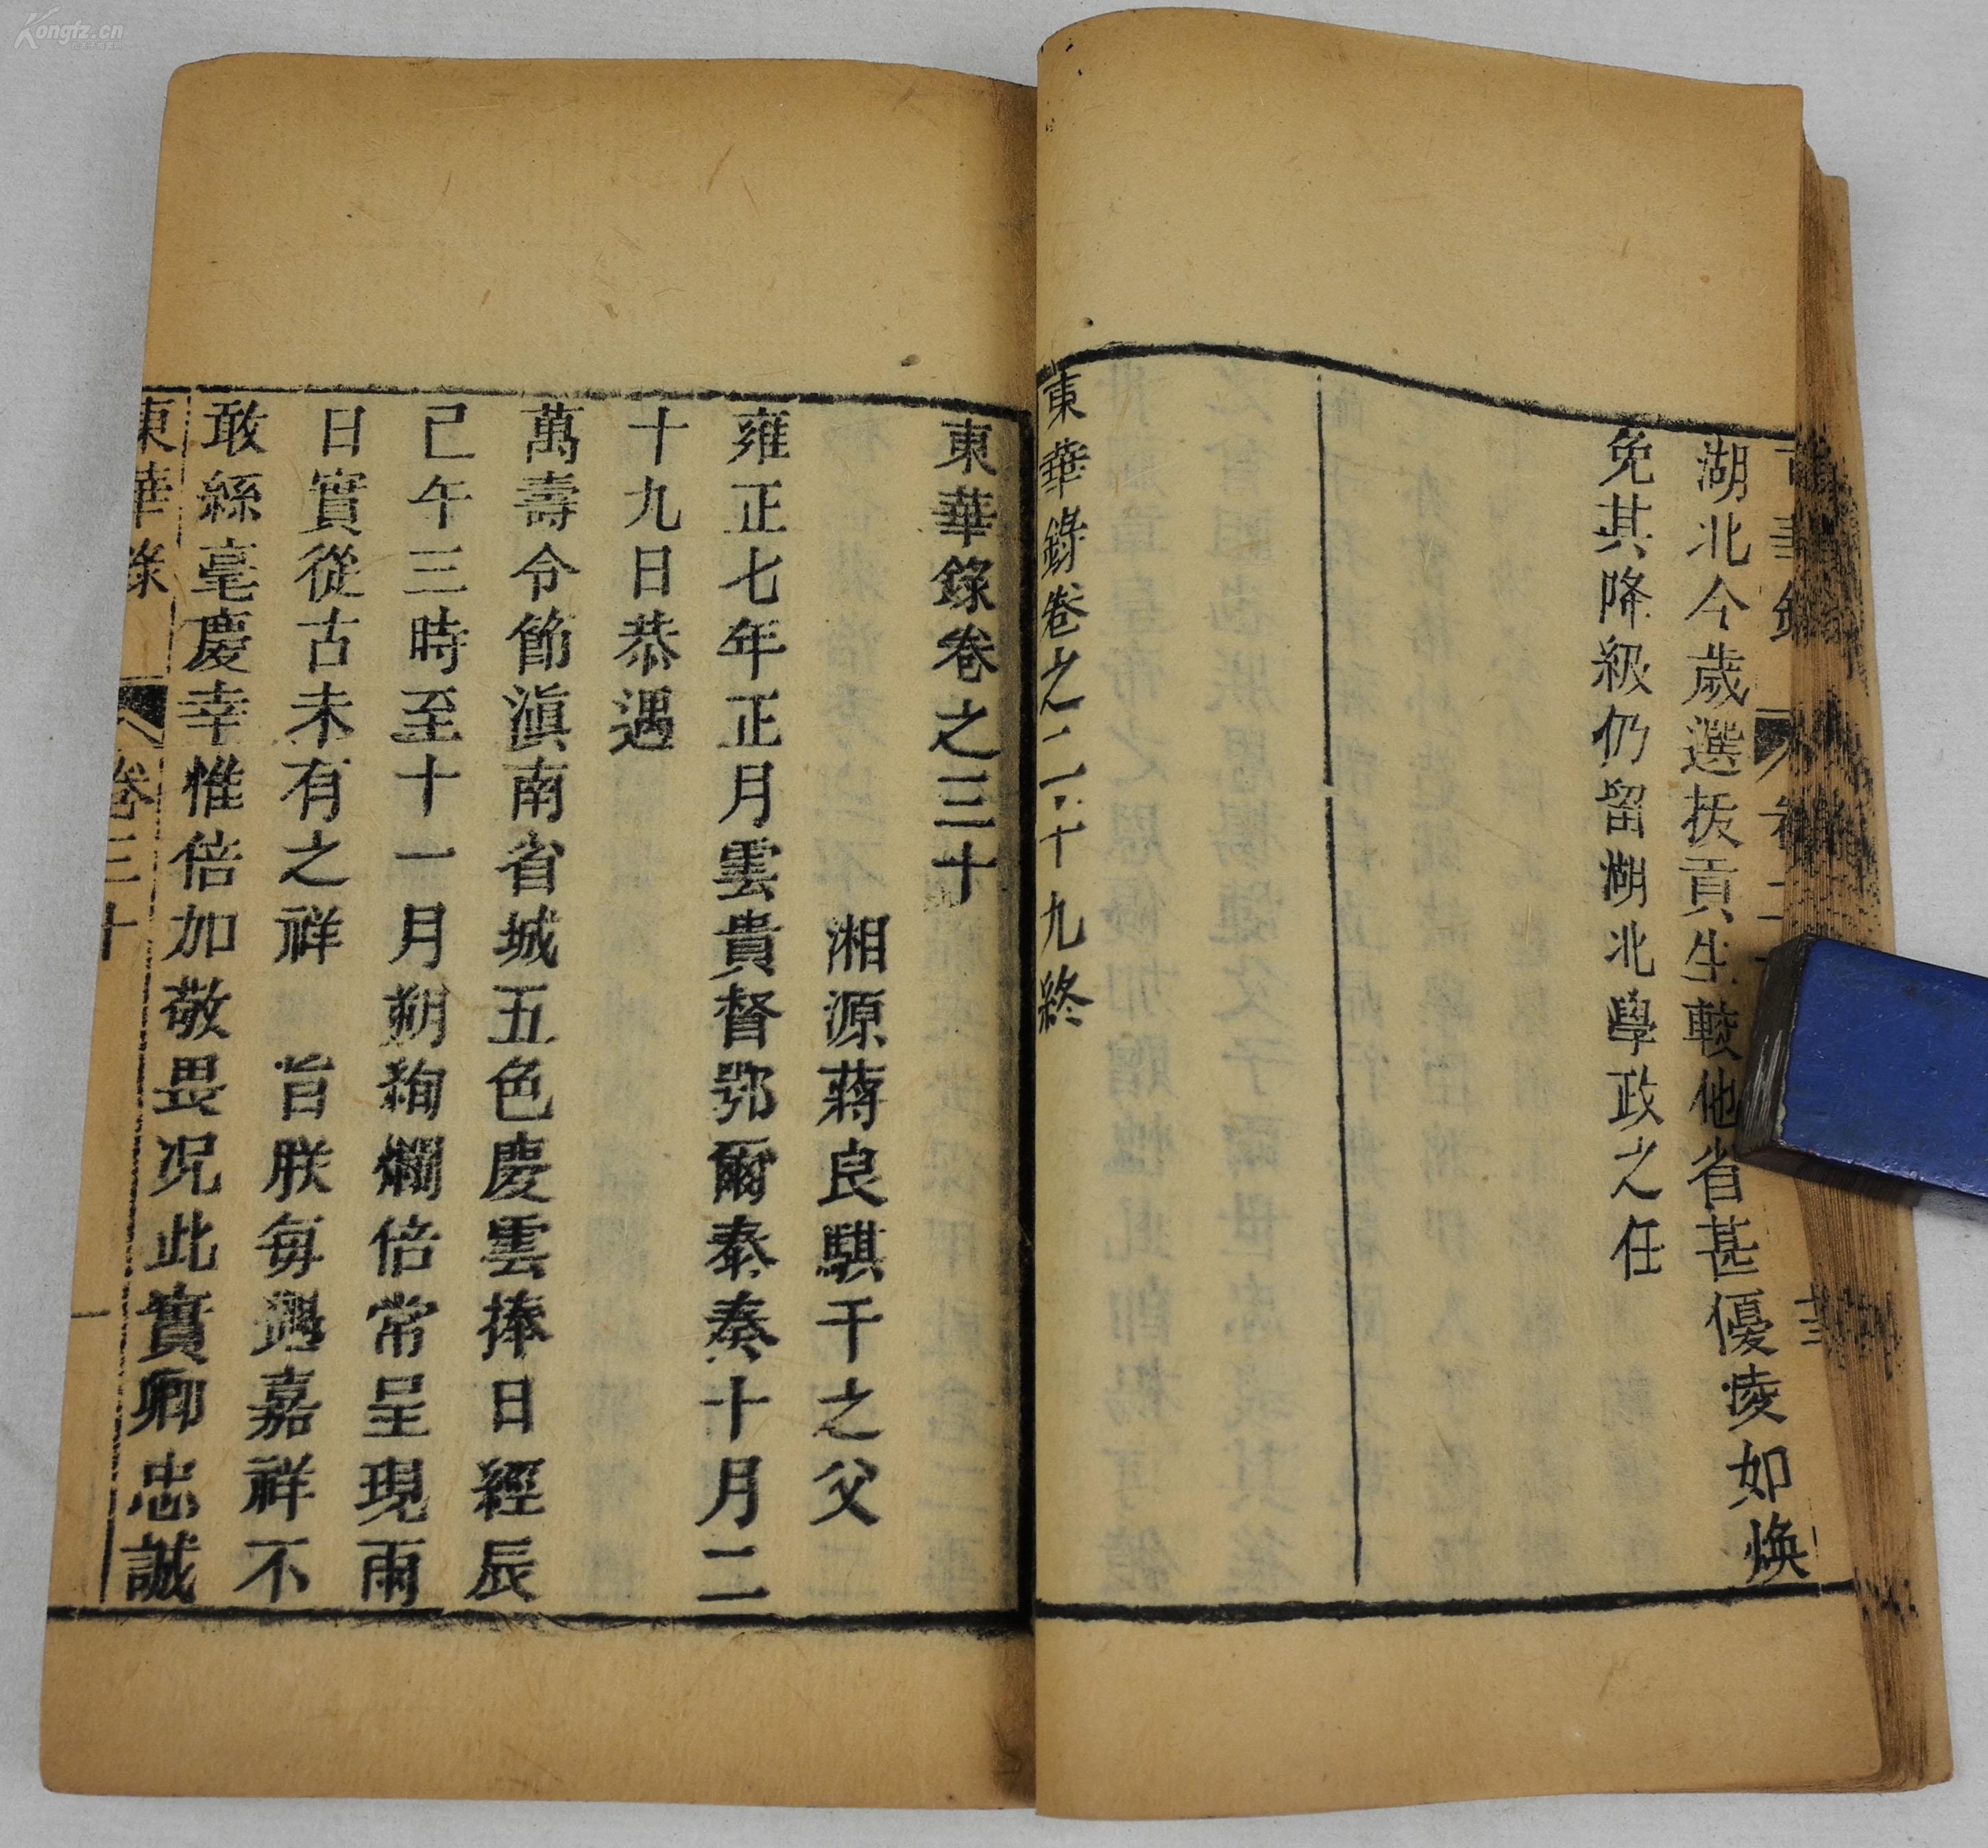 湖北今歲選拔貢生較他省甚優凌如煥
免其降級仍留湖北學政之任
東華錄卷之二十九終
東華錄卷之三十
湘源蔣良騏千之父
雍正七年正月雲貴督鄂爾泰奏十月二
十九日恭遇
萬壽令節滇南省城五色慶雲捧日經辰
巳午三時至十一月朔絢爛倍常呈現兩
日實從古未有之祥 旨朕每遇嘉祥不
敢絲毫慶幸惟倍加敬畏况此實卿忠誠
東華錄 卷三十 一
Kongfz.cn